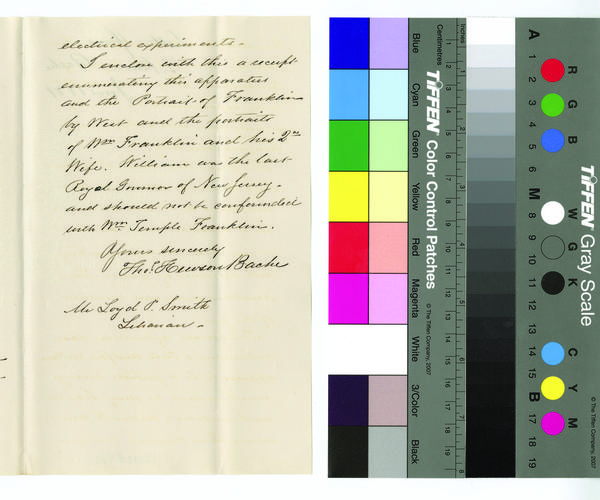 electrical experiments.
I enclose with this a receipt
enumerating this apparatus
and the Portrait of Franklin
by West and the portraits
of Wm Franklin and his 2nd
Wife. William was the last
Royal Governor of New Jersey.
and should not be confounded
with Wm. Temple Franklin.
Yours sincerely
Tho. Hewson Bache
Mr Loyd P. Smith
Librarian
Blue
Cyan
Green
Yellow
Red
Magenta
White
3/Color
Black
Centimetres
Inches
TIFFEN Color Control Patches
© The Tiffen Company, 2007
1
2
3
4
5
6
7
8
9
10
11
12
13
14
15
16
17
18
19
1
2
3
4
5
6
7
8
A
1
2
3
4
5
M
8
9
10
11
12
13
14
15
B
17
18
19
R
G
B
W
G
K
C
Y
M
TIFFEN Gray Scale
© The Tiffen Company, 2007